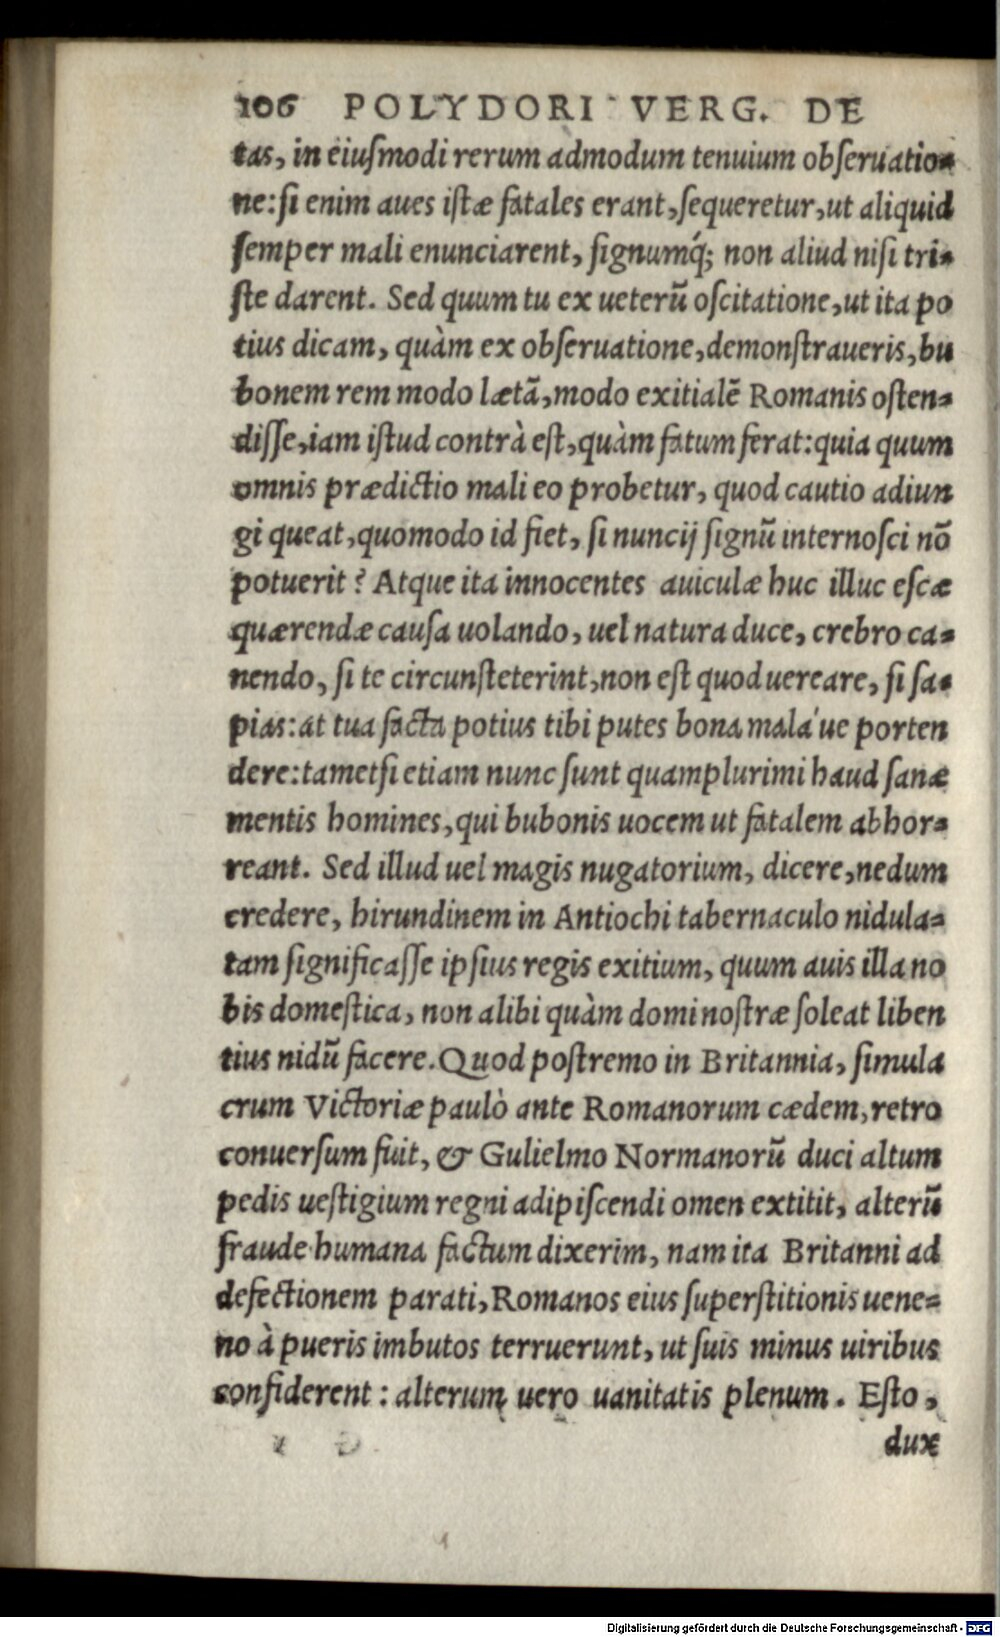 106 POLYDORI VERG. DE
tas, in eiusmodi rerum admodum tenuium obseruatio=
ne: si enim aues istæ fatales erant, sequeretur, ut aliquid
semper mali enunciarent, signumq́; non aliud nisi tri=
ste darent. Sed quum tu ex ueterū oscitatione, ut ita po
tius dicam, quàm ex obseruatione, demonstraueris, bu
bonem rem modo lætā, modo exitialē Romanis osten=
disse, iam istud contrà est, quàm fatum ferat: quia quum
omnis prædictio mali eo probetur, quod cautio adiun
gi queat, quomodo id fiet, si nuncij signū internosci nō
potuerit? Atque ita innocentes auiculæ huc illuc escæ
quærendæ causa uolando, uel natura duce, crebro ca=
nendo, si te circunsteterint, non est quod uereare, si sa=
pias: at tua facta potius tibi putes bona mala ́ue porten
dere: tametsi etiam nunc sunt quamplurimi haud sanæ
mentis homines, qui bubonis uocem ut fatalem abhor=
reant. Sed illud uel magis nugatorium, dicere, nedum
credere, hirundinem in Antiochi tabernaculo nidula=
tam significasse ipsius regis exitium, quum auis illa no
bis domestica, non alibi quàm domi nostræ soleat liben
tius nidū facere. Quod postremo in Britannia, simula
crum Victoriæ paulò ante Romanorum cædem, retro
conuersum fuit, & Gulielmo Normanorū duci altum
pedis uestigium regni adipiscendi omen extitit, alterū
fraude humana factum dixerim, nam ita Britanni ad
defectionem parati, Romanos eius superstitionis uene=
no à pueris imbutos terruerunt, ut suis minus uiribus
confiderent: alterum uero uanitatis plenum. Esto,
dux
Digitalisierung gefördert durch die Deutsche Forschungsgemeinschaft - DFG